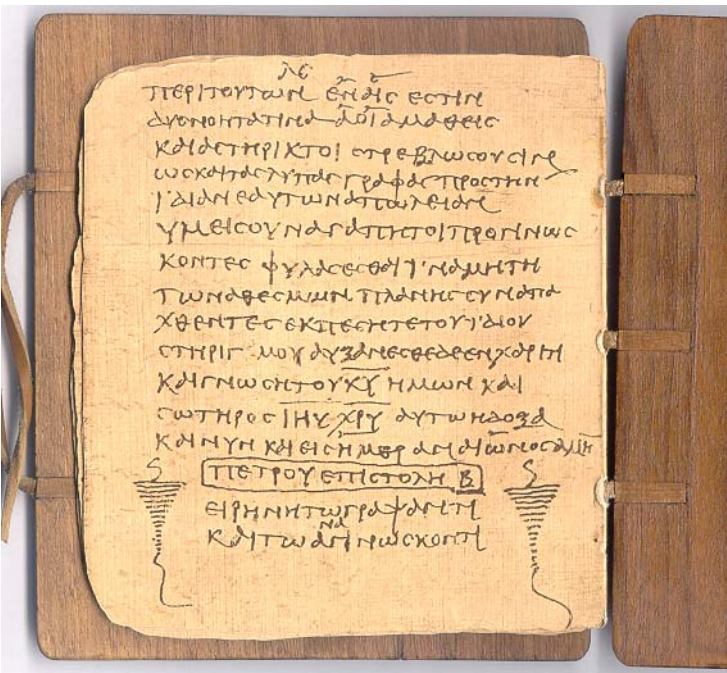 λε
ΠΕΡΙΤΟΥΤΩΝ ΕΝΑΙΣ ΕΣΤΙΝ
ΔΥΣΝΟΗΤΑΤΙΝΑ ΑΟΙΑΜΑΘΕΙΣ
ΚΑΙΑΣΤΗΡΙΚΤΟΙ ΣΤΡΕΒΛΩΣΟΥΣΙΝ
ΩΣΚΑΙΤΑΣΛΥΠΑΣΓΡΑΦΑΣΠΡΟΣΤΗΝ
ΙΔΙΑΝΕΑΥΤΩΝΑΠΩΛΕΙΑΝ
ΥΜΕΙΣΟΥΝΑΓΑΠΗΤΟΙΠΡΟΓΙΝΩΣ
ΚΟΝΤΕΣ ΦΥΛΑΣΕΣΘΑΙΙΝΑΜΗΤΗ
ΤΩΝΑΘΕΣΜΩΝ ΠΛΑΝΗΣΣΥΝΑΠΑ
ΧΘΕΝΤΕΣΕΚΠΕΣΗΤΕΤΟΥΙΔΙΟΥ
ΣΤΗΡΙΓΜΟΥΑΥΞΑΝΕΣΘΕΔΕΕΝΧΑΡΙΤΙ
ΚΑΙΓΝΩΣΗΤΟΥΚΥ ΗΜΩΝ ΚΑΙ
ΣΩΤΗΡΟΣ ΙΗΥ ΧΡΥ ΑΥΤΩΗΔΟΞΑ
ΚΑΙΝΥΝ ΚΑΙΕΙΣΗΜΕΡΑΝΑΙΩΝΟΣΑΜΗ
ΠΕΤΡΟΥΕΠΙΣΤΟΛΗ Β
ΕΙΡΗΝΗΤΩΓΡΑΨΑΝΤΙ
ΚΑΙΤΩΑΝΑΓΙΝΩΣΚΟΝΤΙ